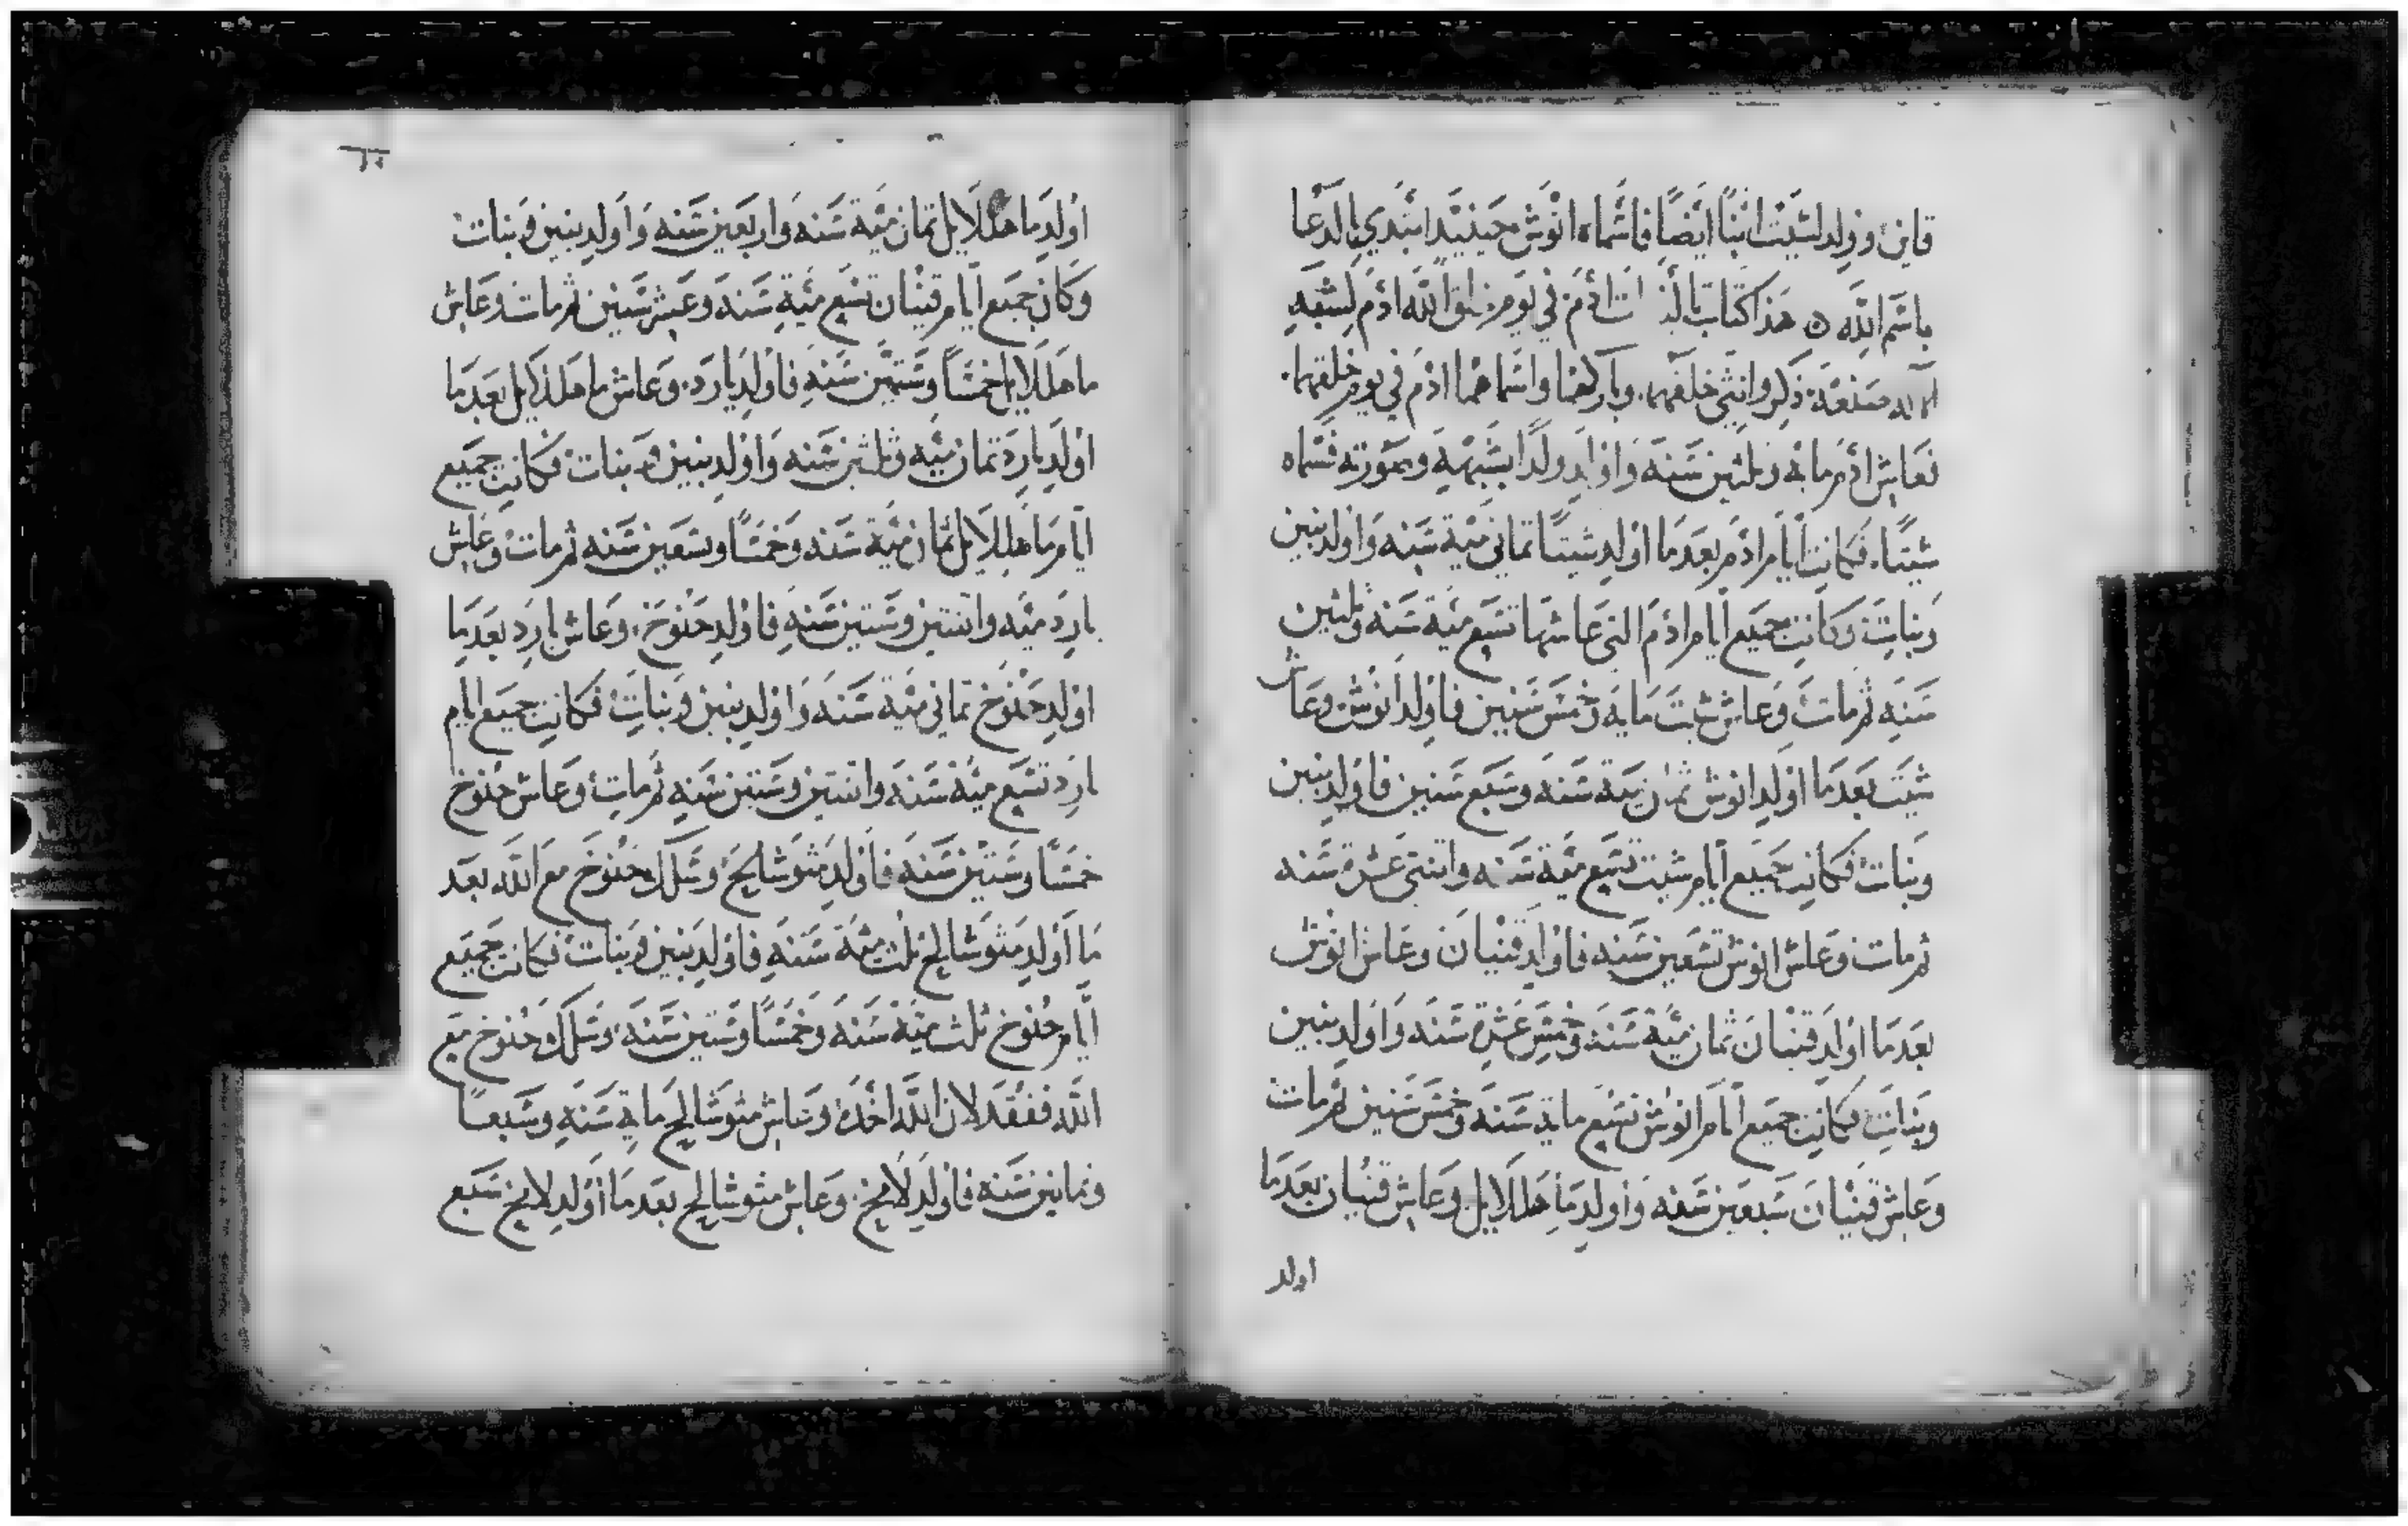 قاين وولد لشيث ابنًا ايضًا فاسماه انوش حينيذ ابتدي بالدعا
باسم الله ه هذا كتاب ادم في يوم خلق الله ادم لشبه
صنعة ذكر وانثى خلقهما وباركهما واسماهما ادم في يوم خلقهما
فعاش ادم مايه وثلثين سنه واولد ولدًا بشبهه وصورته فسماه
شيثًا فكانت ايام ادم بعد ما اولد شيثًا ثماني مئة سنه واولد بنين
وبنات وكانت جميع ايام ادم التي عاشها تسع مئة سنه وثلثين
سنه ثم مات وعاش شيث مايه وخمس سنين فاولد انوش وعاش
شيث بعد ما اولد انوش ثمان مئة سنه وسبع سنين فاولد بنين
وبنات فكانت جميع ايام شيث تسع مئة سنه واثنتي عشرة سنه
ثم مات وعاش انوش تسعين سنه فاولد قنيان وعاش انوش
بعد ما اولد قنيان ثمان مئة سنه وخمس عشرة سنه واولد بنين
وبنات فكانت جميع ايام انوش تسع ماية سنه وخمس سنين ثم مات
وعاش قنيان سبعين سنه واولد ماهللايل وعاش قنيان بعد ما
اولد
اولد ماهللايل ثمان مئة سنه واربعين سنه واولد بنين وبنات
وكان جميع ايام قنيان تسع مئة سنه وعشر سنين ثم مات وعاش
ماهللايل خمسًا وستين سنه فاولد يارد وعاش ماهللايل بعد ما
اولد يارد ثمان مئه وثلثين سنه واولد بنين وبنات فكانت جميع
ايام ماهللايل ثمان مئة سنه وخمسًا وتسعين سنه ثم مات وعاش
يارد مئه واثنتين وستين سنه فاولد حنوخ وعاش يارد بعد ما
اولد حنوخ ثماني مئة سنه واولد بنين وبنات فكانت جميع ايام
يارد تسع مئة سنه واثنتين وستين سنه ثم مات وعاش حنوخ
خمسًا وستين سنه فاولد متوشالح وسلك حنوخ مع الله بعد
ما اولد متوشالح ثلث مئة سنه فاولد بنين وبنات فكانت جميع
ايام حنوخ ثلث مئة سنه وخمسًا وستين سنه وسلك حنوخ مع
الله ففقد لان الله اخذه وعاش متوشالح ماية سنه وسبعًا
وثمانين سنه فاولد لامخ وعاش متوشالح بعد ما اولد لامخ سبع